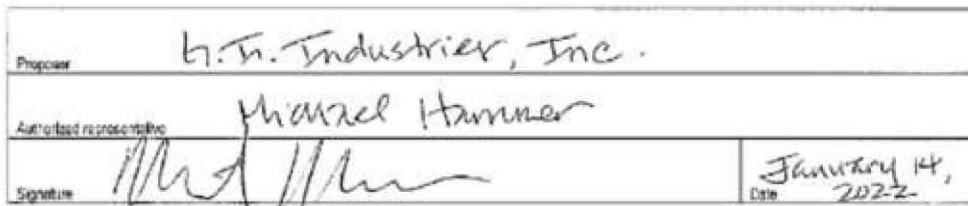 Proposer
h.n. Industries, Inc.
Authorized representative
Michael Hammer
Signature
Date
January 14,
2022